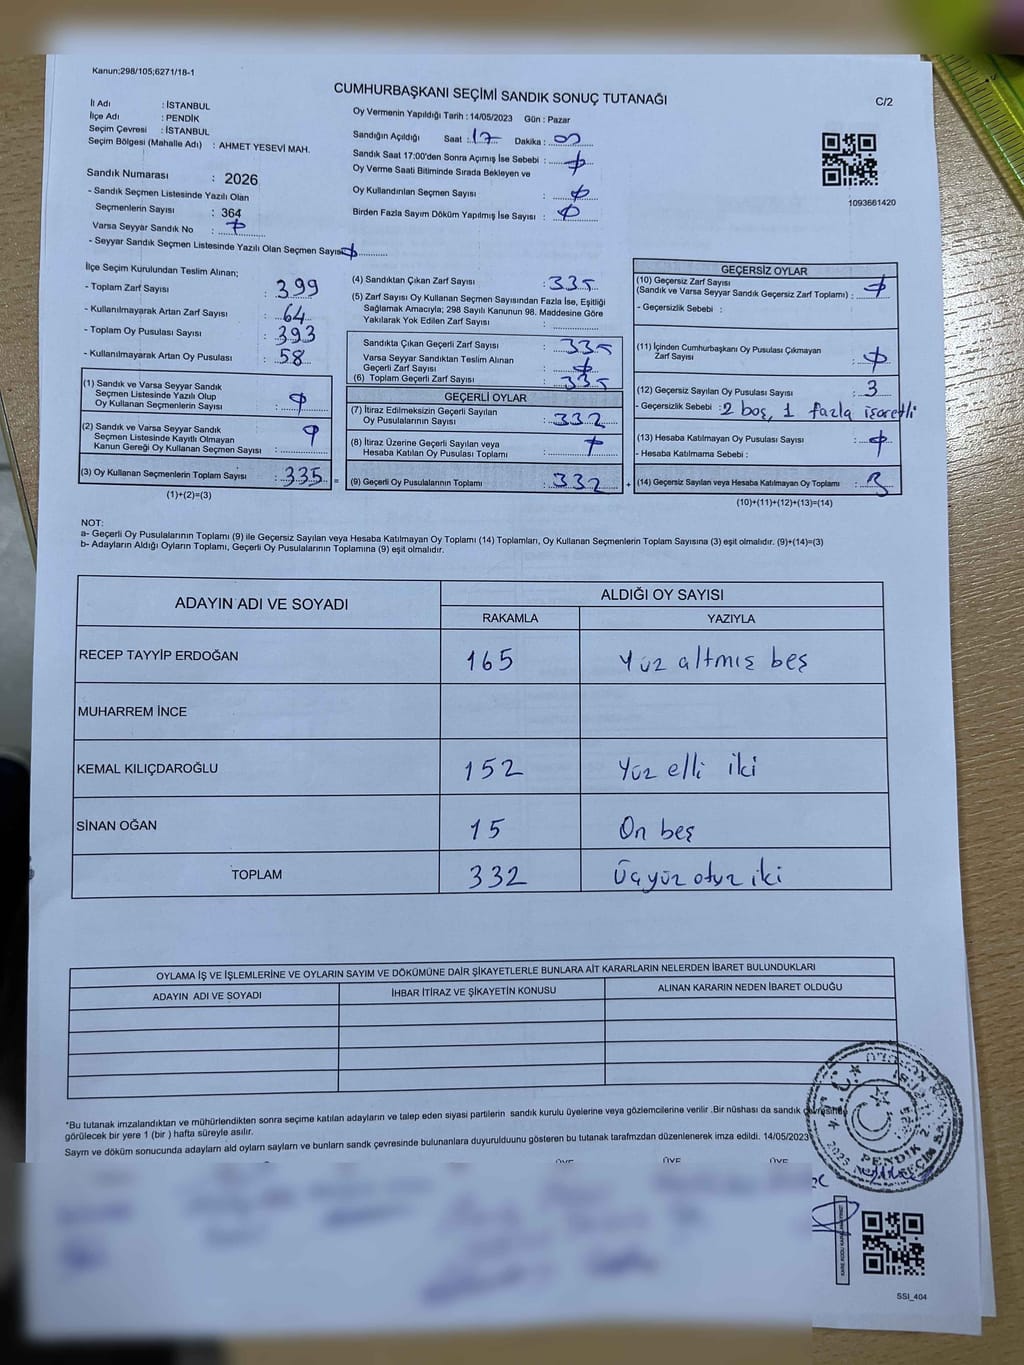 Kanun;298/105;6271/18-1
CUMHURBAŞKANI SEÇİMİ SANDIK SONUÇ TUTANAĞI
C/2
İl Adı : İSTANBUL
İlçe Adı : PENDİK
Seçim Çevresi : İSTANBUL
Seçim Bölgesi (Mahalle Adı) : AHMET YESEVİ MAH.
Sandık Numarası : 2026
- Sandık Seçmen Listesinde Yazılı Olan
Seçmenlerin Sayısı : 364
Varsa Seyyar Sandık No :
- Seyyar Sandık Seçmen Listesinde Yazılı Olan Seçmen Sayısı
Oy Vermenin Yapıldığı Tarih : 14/05/2023 Gün : Pazar
Sandığın Açıldığı Saat : 17 Dakika : 00
Sandık Saat 17:00'den Sonra Açımış İse Sebebi :
Oy Verme Saati Bitiminde Sırada Bekleyen ve
Oy Kullandırılan Seçmen Sayısı :
Birden Fazla Sayım Döküm Yapılmış İse Sayısı :
1093661420
İlçe Seçim Kurulundan Teslim Alınan;
- Toplam Zarf Sayısı : 399
- Kullanılmayarak Artan Zarf Sayısı : 64
- Toplam Oy Pusulası Sayısı : 393
- Kullanılmayarak Artan Oy Pusulası : 58
(1) Sandık ve Varsa Seyyar Sandık
Seçmen Listesinde Yazılı Olup
Oy Kullanan Seçmenlerin Sayısı :
(2) Sandık ve Varsa Seyyar Sandık
Seçmen Listesinde Kayıtlı Olmayan
Kanun Gereği Oy Kullanan Seçmen Sayısı :
(3) Oy Kullanan Seçmenlerin Toplam Sayısı : 335 =
(1)+(2)=(3)
(4) Sandıktan Çıkan Zarf Sayısı : 335
(5) Zarf Sayısı Oy Kullanan Seçmen Sayısından Fazla İse, Eşitliği
Sağlamak Amacıyla; 298 Sayılı Kanunun 98. Maddesine Göre
Yakılarak Yok Edilen Zarf Sayısı :
Sandıkta Çıkan Geçerli Zarf Sayısı : 335
Varsa Seyyar Sandıktan Teslim Alınan
Geçerli Zarf Sayısı :
(6) Toplam Geçerli Zarf Sayısı : 335
GEÇERLİ OYLAR
(7) İtiraz Edilmeksizin Geçerli Sayılan
Oy Pusulalarının Sayısı : 332
(8) İtiraz Üzerine Geçerli Sayılan veya
Hesaba Katılan Oy Pusulası Toplamı :
(9) Geçerli Oy Pusulalarının Toplamı : 332 +
GEÇERSİZ OYLAR
(10) Geçersiz Zarf Sayısı
(Sandık ve Varsa Seyyar Sandık Geçersiz Zarf Toplamı) :
- Geçersizlik Sebebi :
(11) İçinden Cumhurbaşkanı Oy Pusulası Çıkmayan
Zarf Sayısı :
(12) Geçersiz Sayılan Oy Pusulası Sayısı : 3
- Geçersizlik Sebebi : 2 boş, 1 fazla işaretli
(13) Hesaba Katılmayan Oy Pusulası Sayısı :
- Hesaba Katılmama Sebebi :
(14) Geçersiz Sayılan veya Hesaba Katılmayan Oy Toplamı : 3
(10)+(11)+(12)+(13)=(14)
NOT:
a- Geçerli Oy Pusulalarının Toplamı (9) ile Geçersiz Sayılan veya Hesaba Katılmayan Oy Toplamı (14) Toplamları, Oy Kullanan Seçmenlerin Toplam Sayısına (3) eşit olmalıdır. (9)+(14)=(3)
b- Adayların Aldığı Oyların Toplamı, Geçerli Oy Pusulalarının Toplamına (9) eşit olmalıdır.
ADAYIN ADI VE SOYADI
ALDIĞI OY SAYISI
RAKAMLA YAZIYLA
RECEP TAYYİP ERDOĞAN 165 Yüz altmış beş
MUHARREM İNCE
KEMAL KILIÇDAROĞLU 152 Yüz elli iki
SİNAN OĞAN 15 On beş
TOPLAM 332 Üçyüz otuz iki
OYLAMA İŞ VE İŞLEMLERİNE VE OYLARIN SAYIM VE DÖKÜMÜNE DAİR ŞİKAYETLERLE BUNLARA AİT KARARLARIN NELERDEN İBARET BULUNDUKLARI
ADAYIN ADI VE SOYADI İHBAR İTİRAZ VE ŞİKAYETİN KONUSU ALINAN KARARIN NEDEN İBARET OLDUĞU
*Bu tutanak imzalandıktan ve mühürlendikten sonra seçime katılan adayların ve talep eden siyasi partilerin sandık kurulu üyelerine veya gözlemcilerine verilir .Bir nüshası da sandık çevresinde
görülecek bir yere 1 (bir ) hafta süreyle asılır.
Sayım ve döküm sonucunda adayların ald oyların sayları ve bunların sandk çevresinde bulunanlara duyurulduunu gösteren bu tutanak tarafmzdan düzenlenerek imza edildi. 14/05/2023
ÜYE ÜYE ÜYE
T.C.
PENDİK 2.
SSI_404